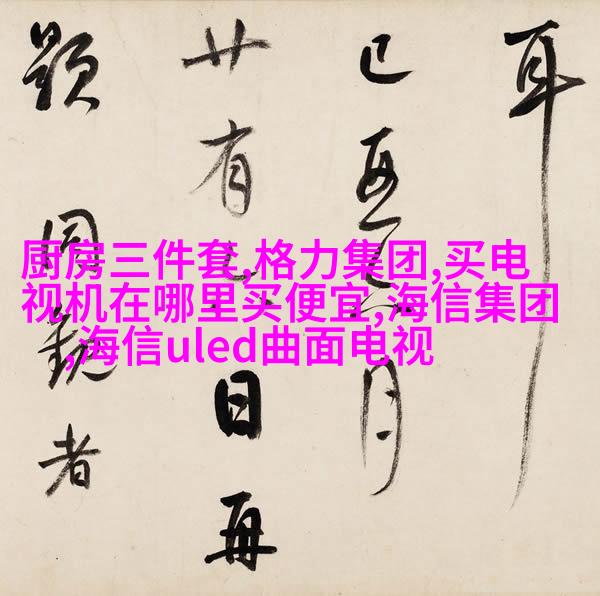 耳
月
廿有日再
題同觀者
厨房三件套,格力集团,买电
视机在哪里买便宜,海信集团
,海信uled曲面电视